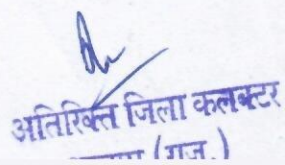 अतिरिक्त जिला कलक्टर
(राज.)